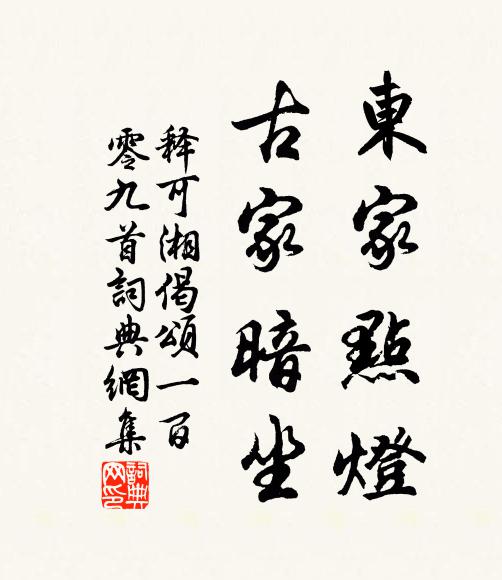 東家點燈
古家暗坐
释可湘偈頌一百
零九首詞典網集
詞典网印